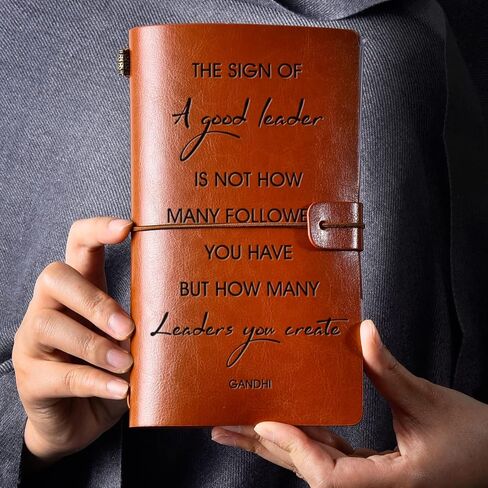 THE SIGN OF
A good leader
IS NOT HOW
MANY FOLLOWE
YOU HAVE
BUT HOW MANY
Leaders you create
GANDHI